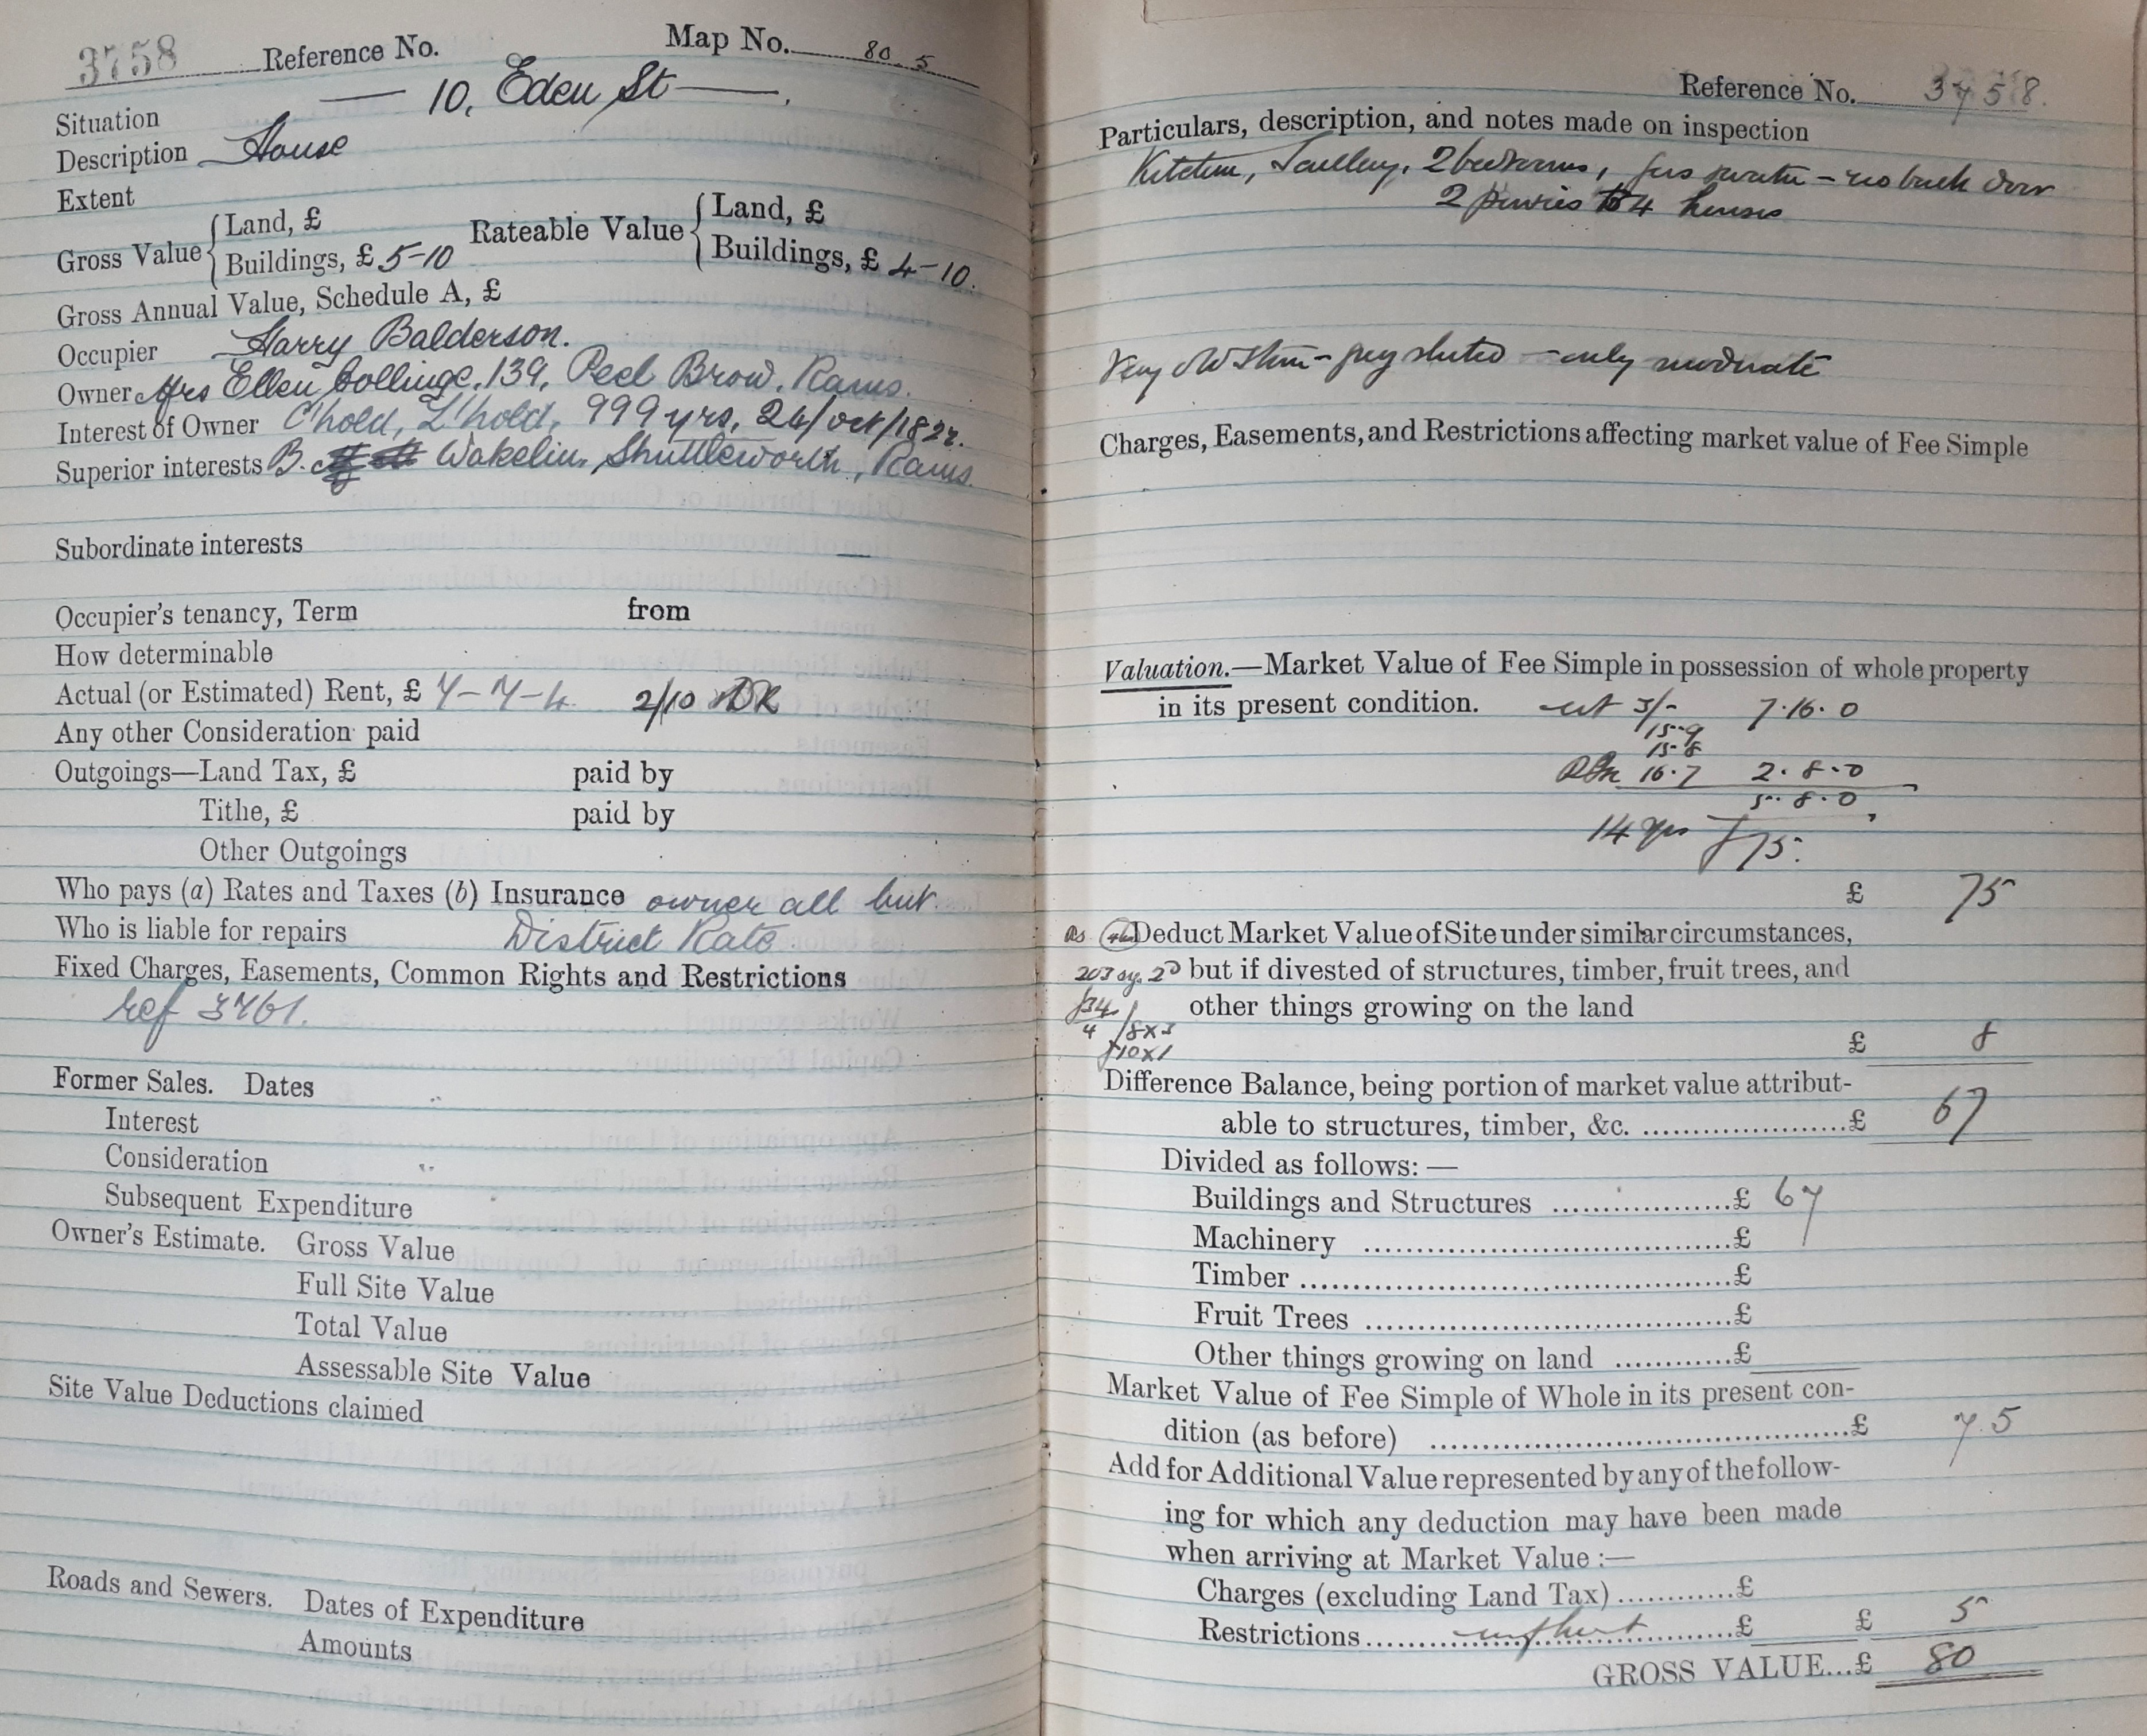 3758 Reference No. Map No. 80.5
Situation — 10, Eden St —
Description House
Extent
Gross Value { Land, £ Rateable Value { Land, £
Buildings, £ 5-10 Buildings, £ 4-10.
Gross Annual Value, Schedule A, £
Occupier Harry Balderson.
Owner Mrs Ellen Collinge, 139, Peel Brow, Rams.
Interest of Owner C'hold, L'hold, 999 yrs, 24/Oct/1822.
Superior interests B. Wakelin, Shuttleworth, Rams.
Subordinate interests —
Occupier's tenancy, Term from
How determinable
Actual (or Estimated) Rent, £ 7-7-4 2/10
Any other Consideration paid
Outgoings—Land Tax, £ paid by
Tithe, £ paid by
Other Outgoings
Who pays (a) Rates and Taxes (b) Insurance owner all but
Who is liable for repairs District Rate
Fixed Charges, Easements, Common Rights and Restrictions
ref 3761.
Former Sales. Dates
Interest
Consideration
Subsequent Expenditure
Owner's Estimate. Gross Value
Full Site Value
Total Value
Assessable Site Value
Site Value Deductions claimed
Roads and Sewers. Dates of Expenditure
Amounts
Reference No. 3758.
Particulars, description, and notes made on inspection
Kitchen, Scullery, 2 bedrooms, gas water – no back door
2 privies to 4 houses
Very old stone – grey slated – only moderate
Charges, Easements, and Restrictions affecting market value of Fee Simple
Valuation.—Market Value of Fee Simple in possession of whole property
in its present condition. at 3/- 7.16.0
15-9
15-8
16.7 2.8.0
5.8.0
14 yrs £75.
£ 75
As Deduct Market Value of Site under similar circumstances,
203 sy. 2D but if divested of structures, timber, fruit trees, and
£34 other things growing on the land
4 /8x3
£10x1
£ 8
Difference Balance, being portion of market value attribut-
able to structures, timber, &c. ........£ 67
Divided as follows: —
Buildings and Structures ........£ 67
Machinery ........£
Timber ........£
Fruit Trees ........£
Other things growing on land ........£
Market Value of Fee Simple of Whole in its present con-
dition (as before) ........£ 75
Add for Additional Value represented by any of the follow-
ing for which any deduction may have been made
when arriving at Market Value :—
Charges (excluding Land Tax) ........£
Restrictions ........£ £ 5
GROSS VALUE...£ 80